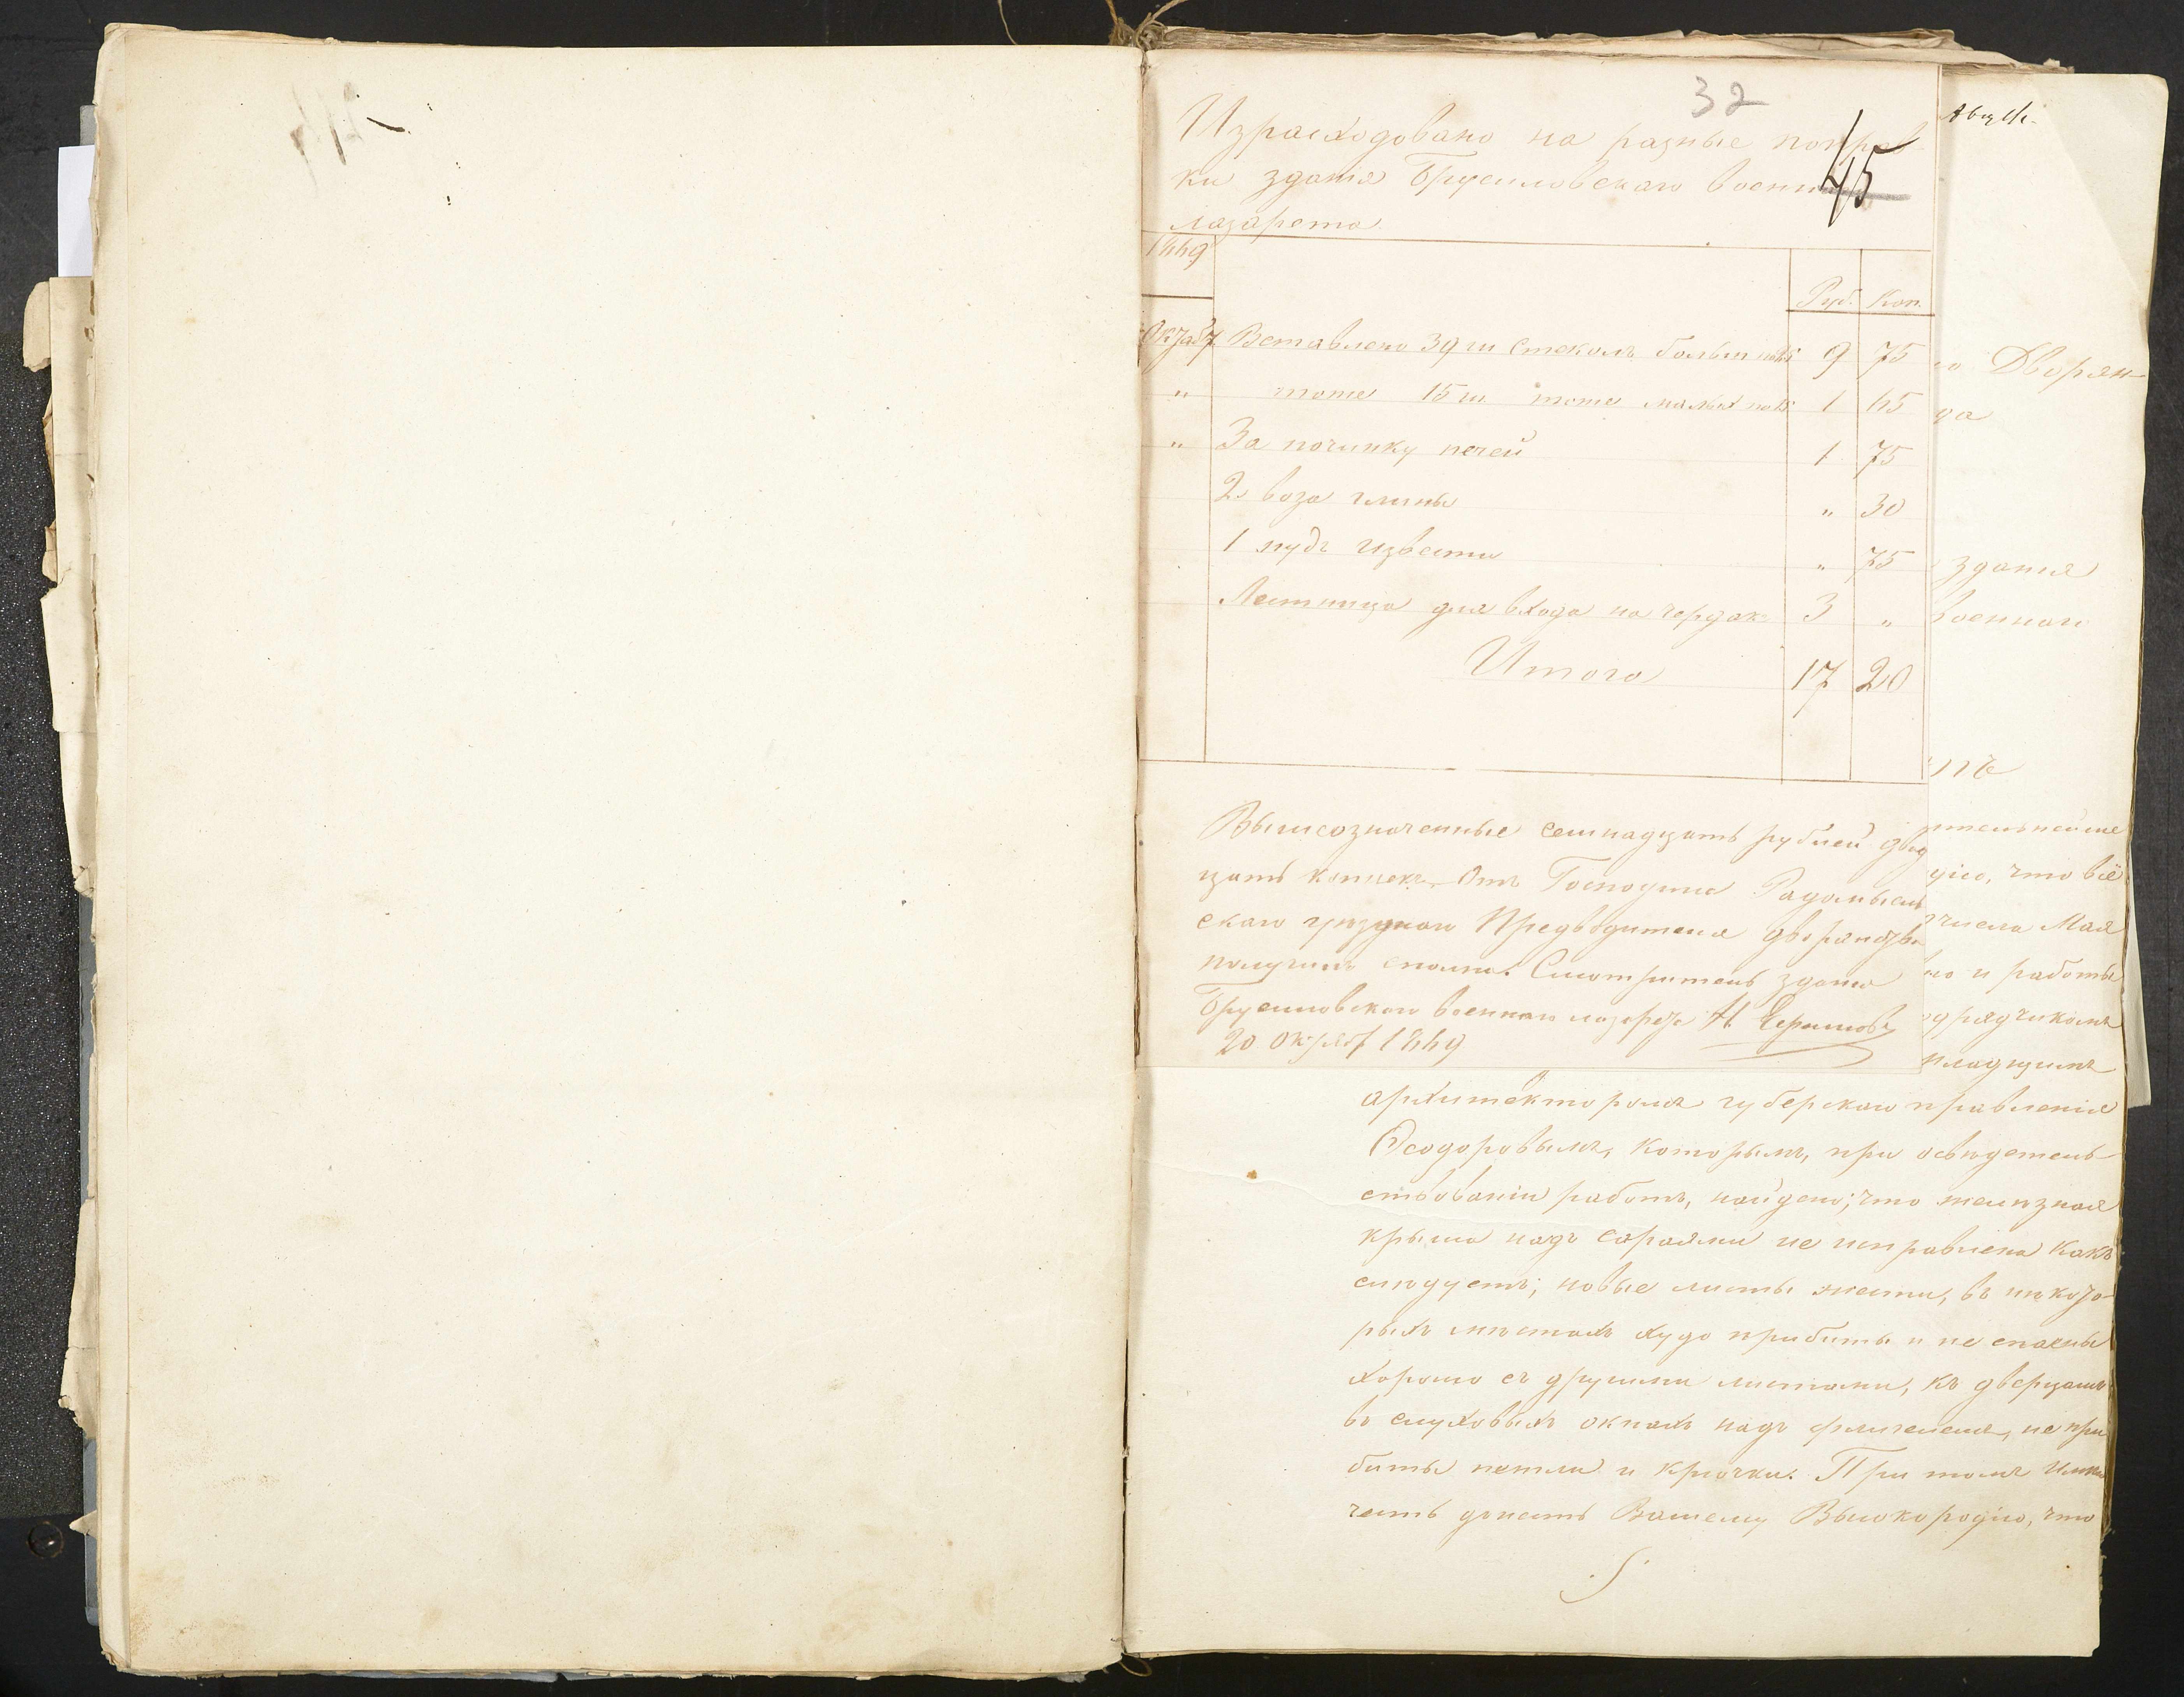 32
45
Израсходовано на разные поправ-
ки зданія Брусиловскаго военнаго
лазарета
1869
Руб. Коп.
Октяб 7 Вставлено 39 ти стеколъ больш по 25 9 75
" тоже 15 ти тоже малых по 11 1 65
" За починку печей 1 75
2 воза глины " 30
1 пудъ извести " 75
Лестница для входа на чердак 3 "
Итого 17 20
Вышеозначенные семнадцать рублей двад
цать копѣекъ, Отъ Господина Радомысль
скаго уѣзднаго Предводителя дворянства
получилъ сполна. Смотритель зданія
Брусиловскаго военнаго лазарета Н.
20 Октяб 1869
Дворян-
да
зданія
военнаго
что всѣ
числа Мая
и работы
одрядчикомъ
младшимъ
архитекторомъ губерскаго правленія
Ѳеодоровымъ, которымъ, при освидетель-
ствованіи работъ, найдено; что желѣзная
крыша надъ сараями не исправлена какъ
слѣдуетъ; новые листы жести, въ нѣкото-
рыхъ мѣстахъ худо прибиты и не спаены
хорошо съ другими листами, къ дверцамъ
въ слуховыхъ окнахъ надъ флигелемъ, не при
биты петли и крючки. При томъ имѣю
честь донесть Вашему Высокородію, что